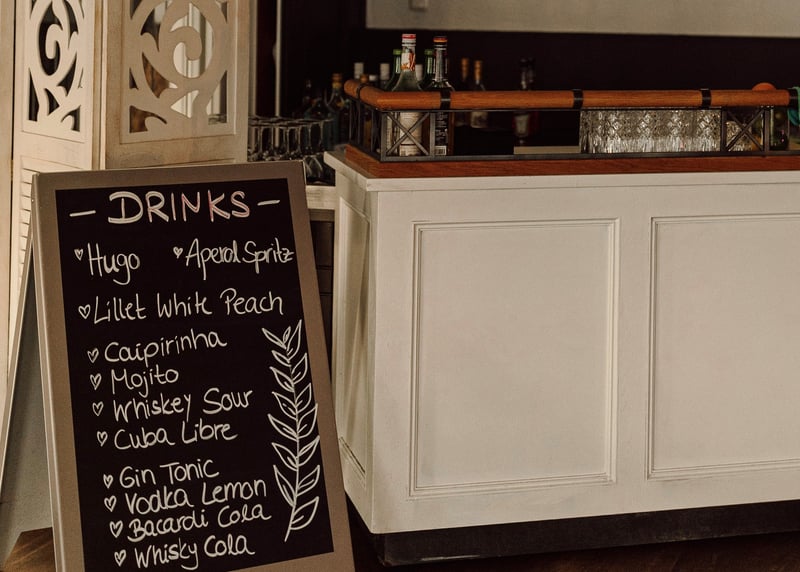 – DRINKS –
♡ Hugo ♡ Aperol Spritz
♡ Lillet White Peach
♡ Caipirinha
♡ Mojito
♡ Whiskey Sour
♡ Cuba Libre
♡ Gin Tonic
♡ Vodka Lemon
♡ Bacardi Cola
♡ Whisky Cola